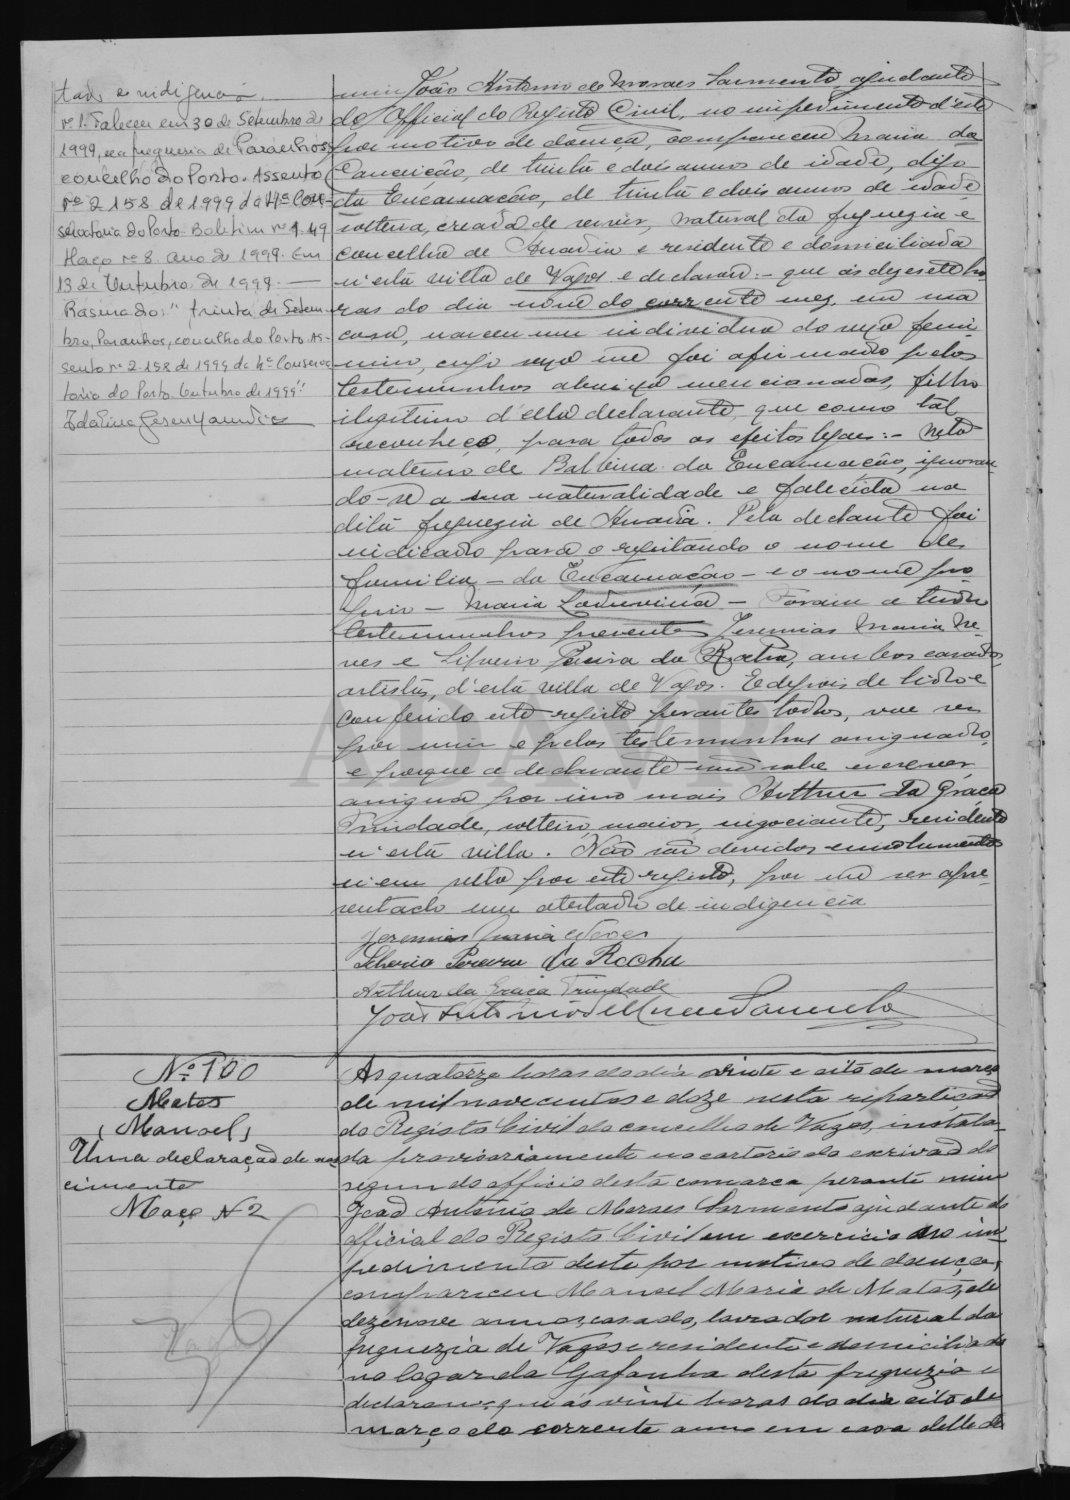 tado de indigencia.
nº 1. Faleceu em 30 de Setembro de
1999, na freguesia de Paranhos,
concelho do Porto. Assento
nº 2158 de 1999 da 4ª Con-
servatoria do Porto. Boletim nº 149
Maço nº 8. ano de 1999. Em
13 de Outubro de 1999. —
Rasurado: "trinta de Setem-
bro, Paranhos, concelho do Porto. As-
sento nº 2158 de 1999 da 4ª Conserva
tória do Porto. Outubro de 1999"
mim João Antonio de Moraes Sarmento ajudante
do Official do Registo Civil, no impedimento d'este
por motivo de doença, compareceu Maria da
Conceição, de trinta e dois annos de idade, digo
da Encarnação, de trinta e dois annos de idade
solteira, creada de servir, natural da freguezia e
concelho de Anadia e residente e domiciliada
n'esta villa de Vagos e declarou: – que ás dezesete ho-
ras do dia nove do corrente mez, em sua
casa, nasceu um individuo do sexo femi-
nino, cujo sexo me foi afirmado pelas
testemunhas abaixo mencionadas, filho
ilegitimo d'ella declarante, que como tal
reconheço, para todos os efeitos legaes: – Neto
materno de Balbina da Encarnação, ignoran-
do-se a sua naturalidade e falecida na
dita freguezia de Anadia. Pela declarante foi
indicado para o registando o nome de
familia – da Encarnação – e o nome pro-
prio – Maria Ludovina – Foram a tudo
testemunhas presentes Jeremias Maria Ne-
ves e Silverio Pereira da Rocha, ambos casados,
artistas, d'esta villa de Vagos. E depois de lido e
conferido este registo perante todos, vae ser
por mim e pelas testemunhas assignado,
e porque a declarante não sabe escrever
assigna por ino mais Arthur da Graça
Trindade, solteiro, maior, negociante, residente
n'esta villa. Não são devidos emolumentos
nem sello por este registo, por me ser apre-
sentado um atestado de indigencia
Jeremias Maria Neves
Silverio Pereira da Rocha
Arthur da Graça Trindade
João Antonio de Moraes Sarmento
ADAVR
Nº 100
Matos
(Manoel)
Uma declaração de nas
cimento
Maço Nº 2
Vagos
As quatorze horas do dia vinte e oito de março
de mil novecentos e doze nesta repartição
do Registo Civil do concelho de Vagos, instala-
da provisoriamente no cartorio do escrivão do
segundo officio desta comarca perante mim
João Antonio de Moraes Sarmento ajudante do
official do Registo Civil em exercicio no im-
pedimento deste por motivo de doença,
compareceu Manoel Maria de Matos, de
dezenove annos, casado, lavrador natural da
freguezia de Vagos e residente e domiciliado
no logar da Gafanha desta freguezia e
declarou: que ás vinte horas do dia oito de
março do corrente anno em casa delle de